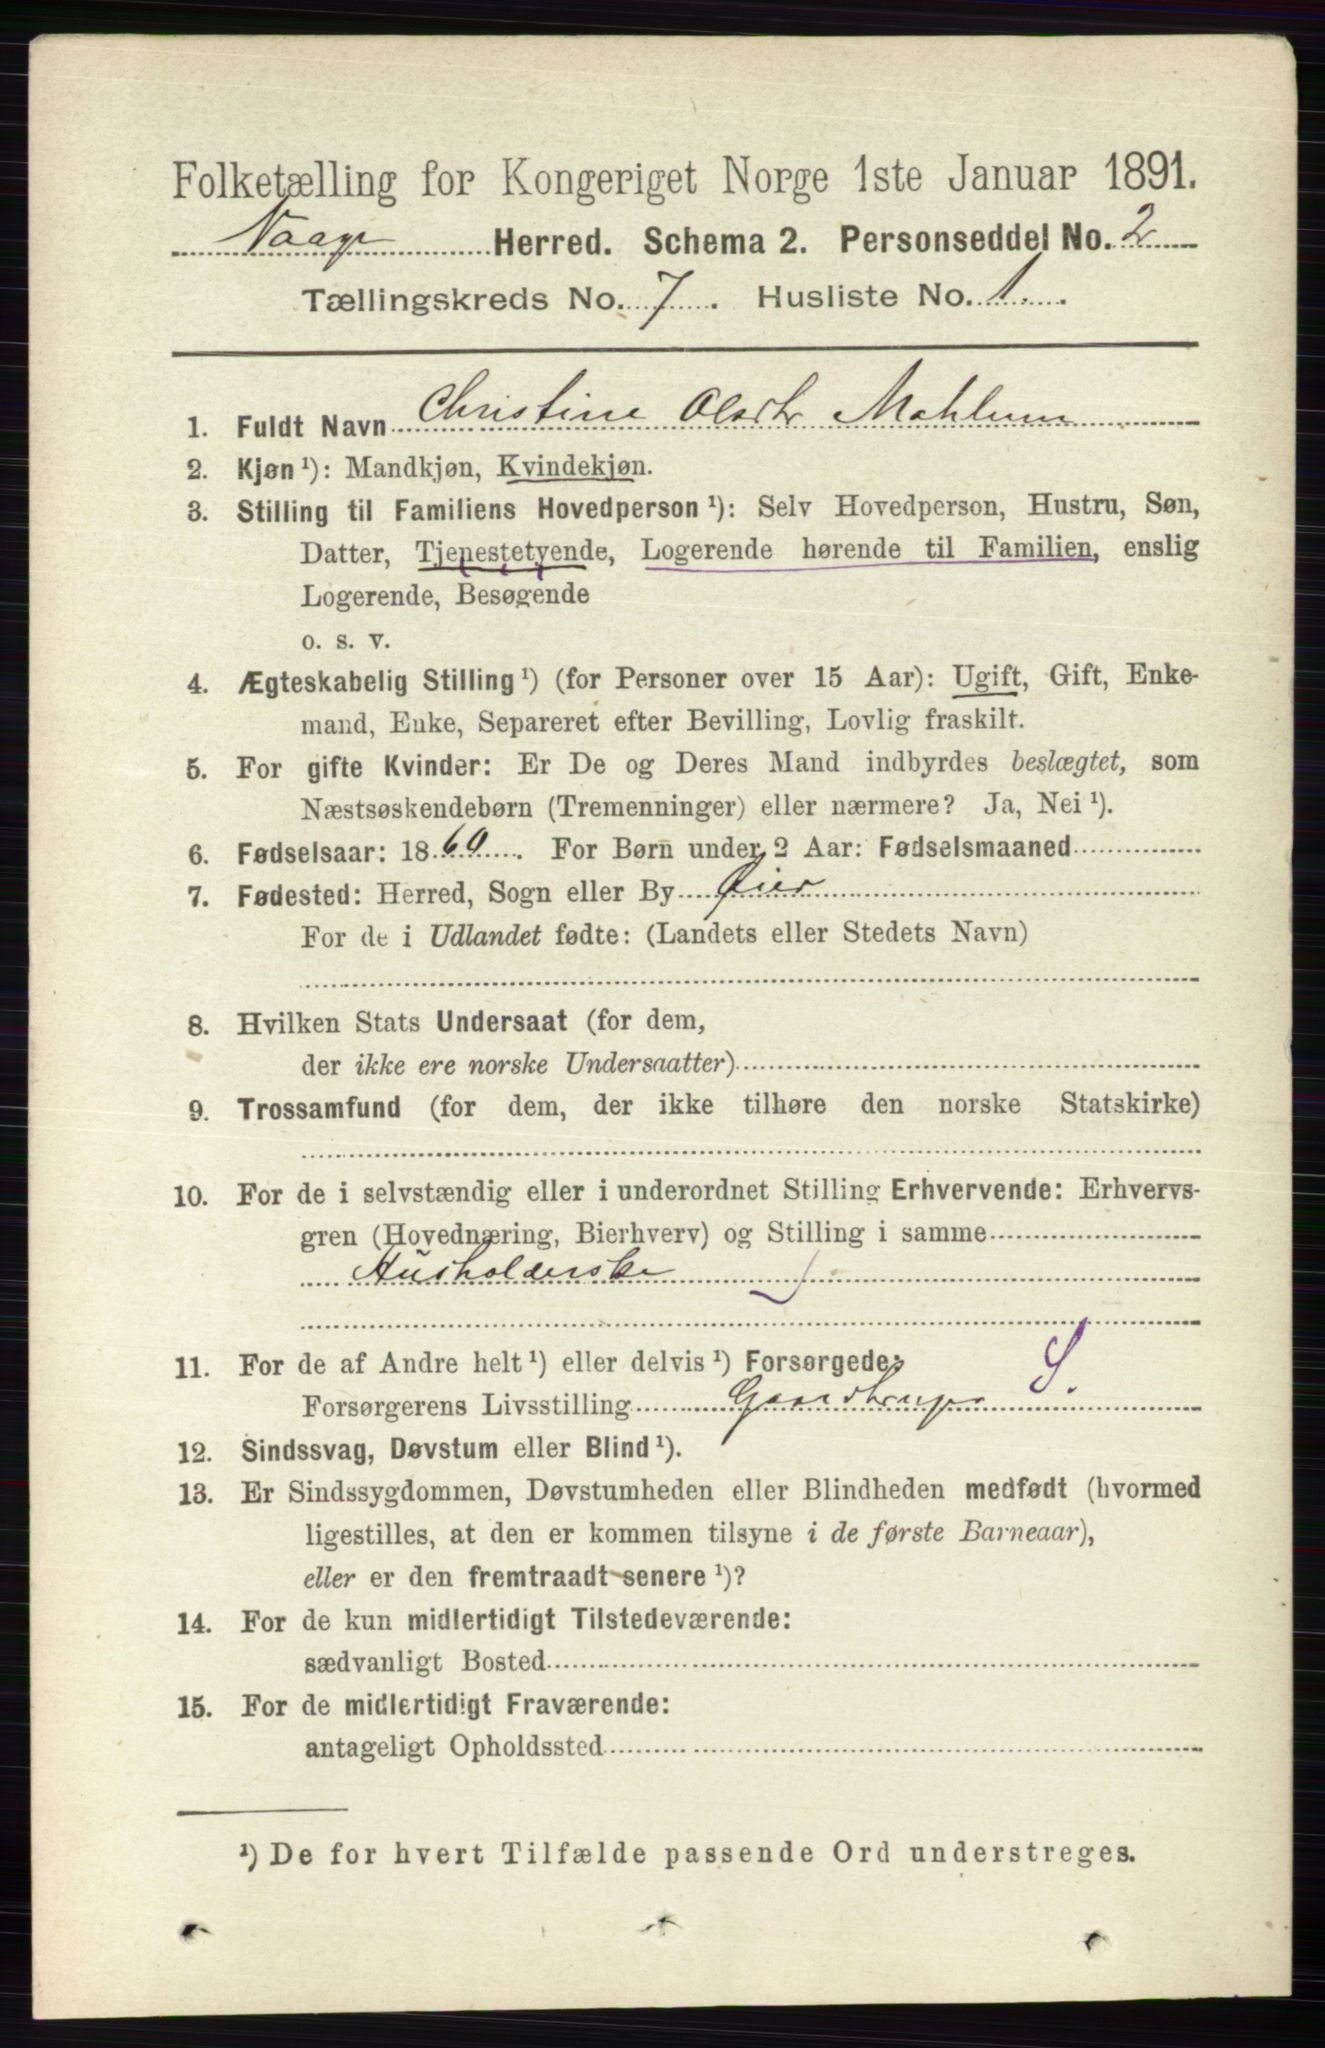 Folketælling for Kongeriget Norge 1ste Januar 1891.
Vaage Herred. Schema 2. Personseddel No. 2
Tællingskreds No. 7. Husliste No. 1.
1. Fuldt Navn Christine Olsdtr Mæhlum
2. Kjøn ¹): Mandkjøn, Kvindekjøn.
3. Stilling til Familiens Hovedperson ¹): Selv Hovedperson, Hustru, Søn,
Datter, Tjenestetyende, Logerende hørende til Familien, enslig
Logerende, Besøgende
o. s. v.
4. Ægteskabelig Stilling ¹) (for Personer over 15 Aar): Ugift, Gift, Enke-
mand, Enke, Separeret efter Bevilling, Lovlig fraskilt.
5. For gifte Kvinder: Er De og Deres Mand indbyrdes beslægtet, som
Næstsøskendebørn (Tremenninger) eller nærmere? Ja, Nei ¹).
6. Fødselsaar: 1860. For Børn under 2 Aar: Fødselsmaaned
7. Fødested: Herred, Sogn eller By Øier
For de i Udlandet fødte: (Landets eller Stedets Navn)
8. Hvilken Stats Undersaat (for dem,
der ikke ere norske Undersaatter)
9. Trossamfund (for dem, der ikke tilhøre den norske Statskirke)
10. For de i selvstændig eller i underordnet Stilling Erhvervende: Erhvervs-
gren (Hovednæring, Bierhverv) og Stilling i samme
Husholderske
11. For de af Andre helt ¹) eller delvis ¹) Forsørgede: S.
Forsørgerens Livsstilling Gaardbruger
12. Sindssvag, Døvstum eller Blind ¹).
13. Er Sindssygdommen, Døvstumheden eller Blindheden medfødt (hvormed
ligestilles, at den er kommen tilsyne i de første Barneaar),
eller er den fremtraadt senere ¹)?
14. For de kun midlertidigt Tilstedeværende:
sædvanligt Bosted
15. For de midlertidigt Fraværende:
antageligt Opholdssted
¹) De for hvert Tilfælde passende Ord understreges.